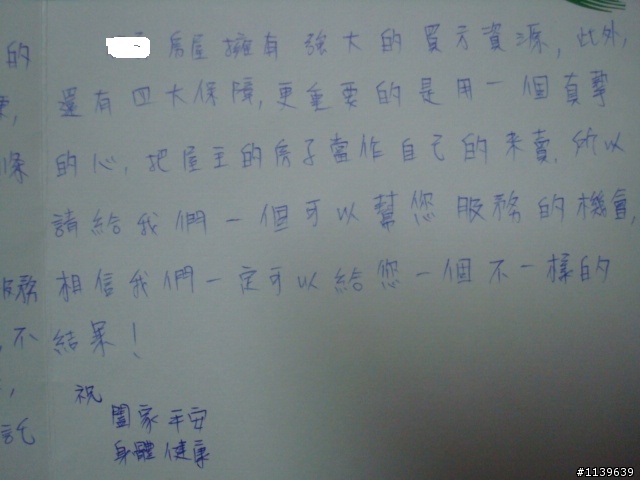 房屋擁有強大的買方資源,此外,
還有四大保障,更重要的是用一個真摯
的心,把屋主的房子當作自己的來賣,所以
請給我們一個可以幫您服務的機會,
相信我們一定可以給您一個不一樣的
結果!
祝
闔家平安
身體健康
的
條
服務
不
託
#1139639